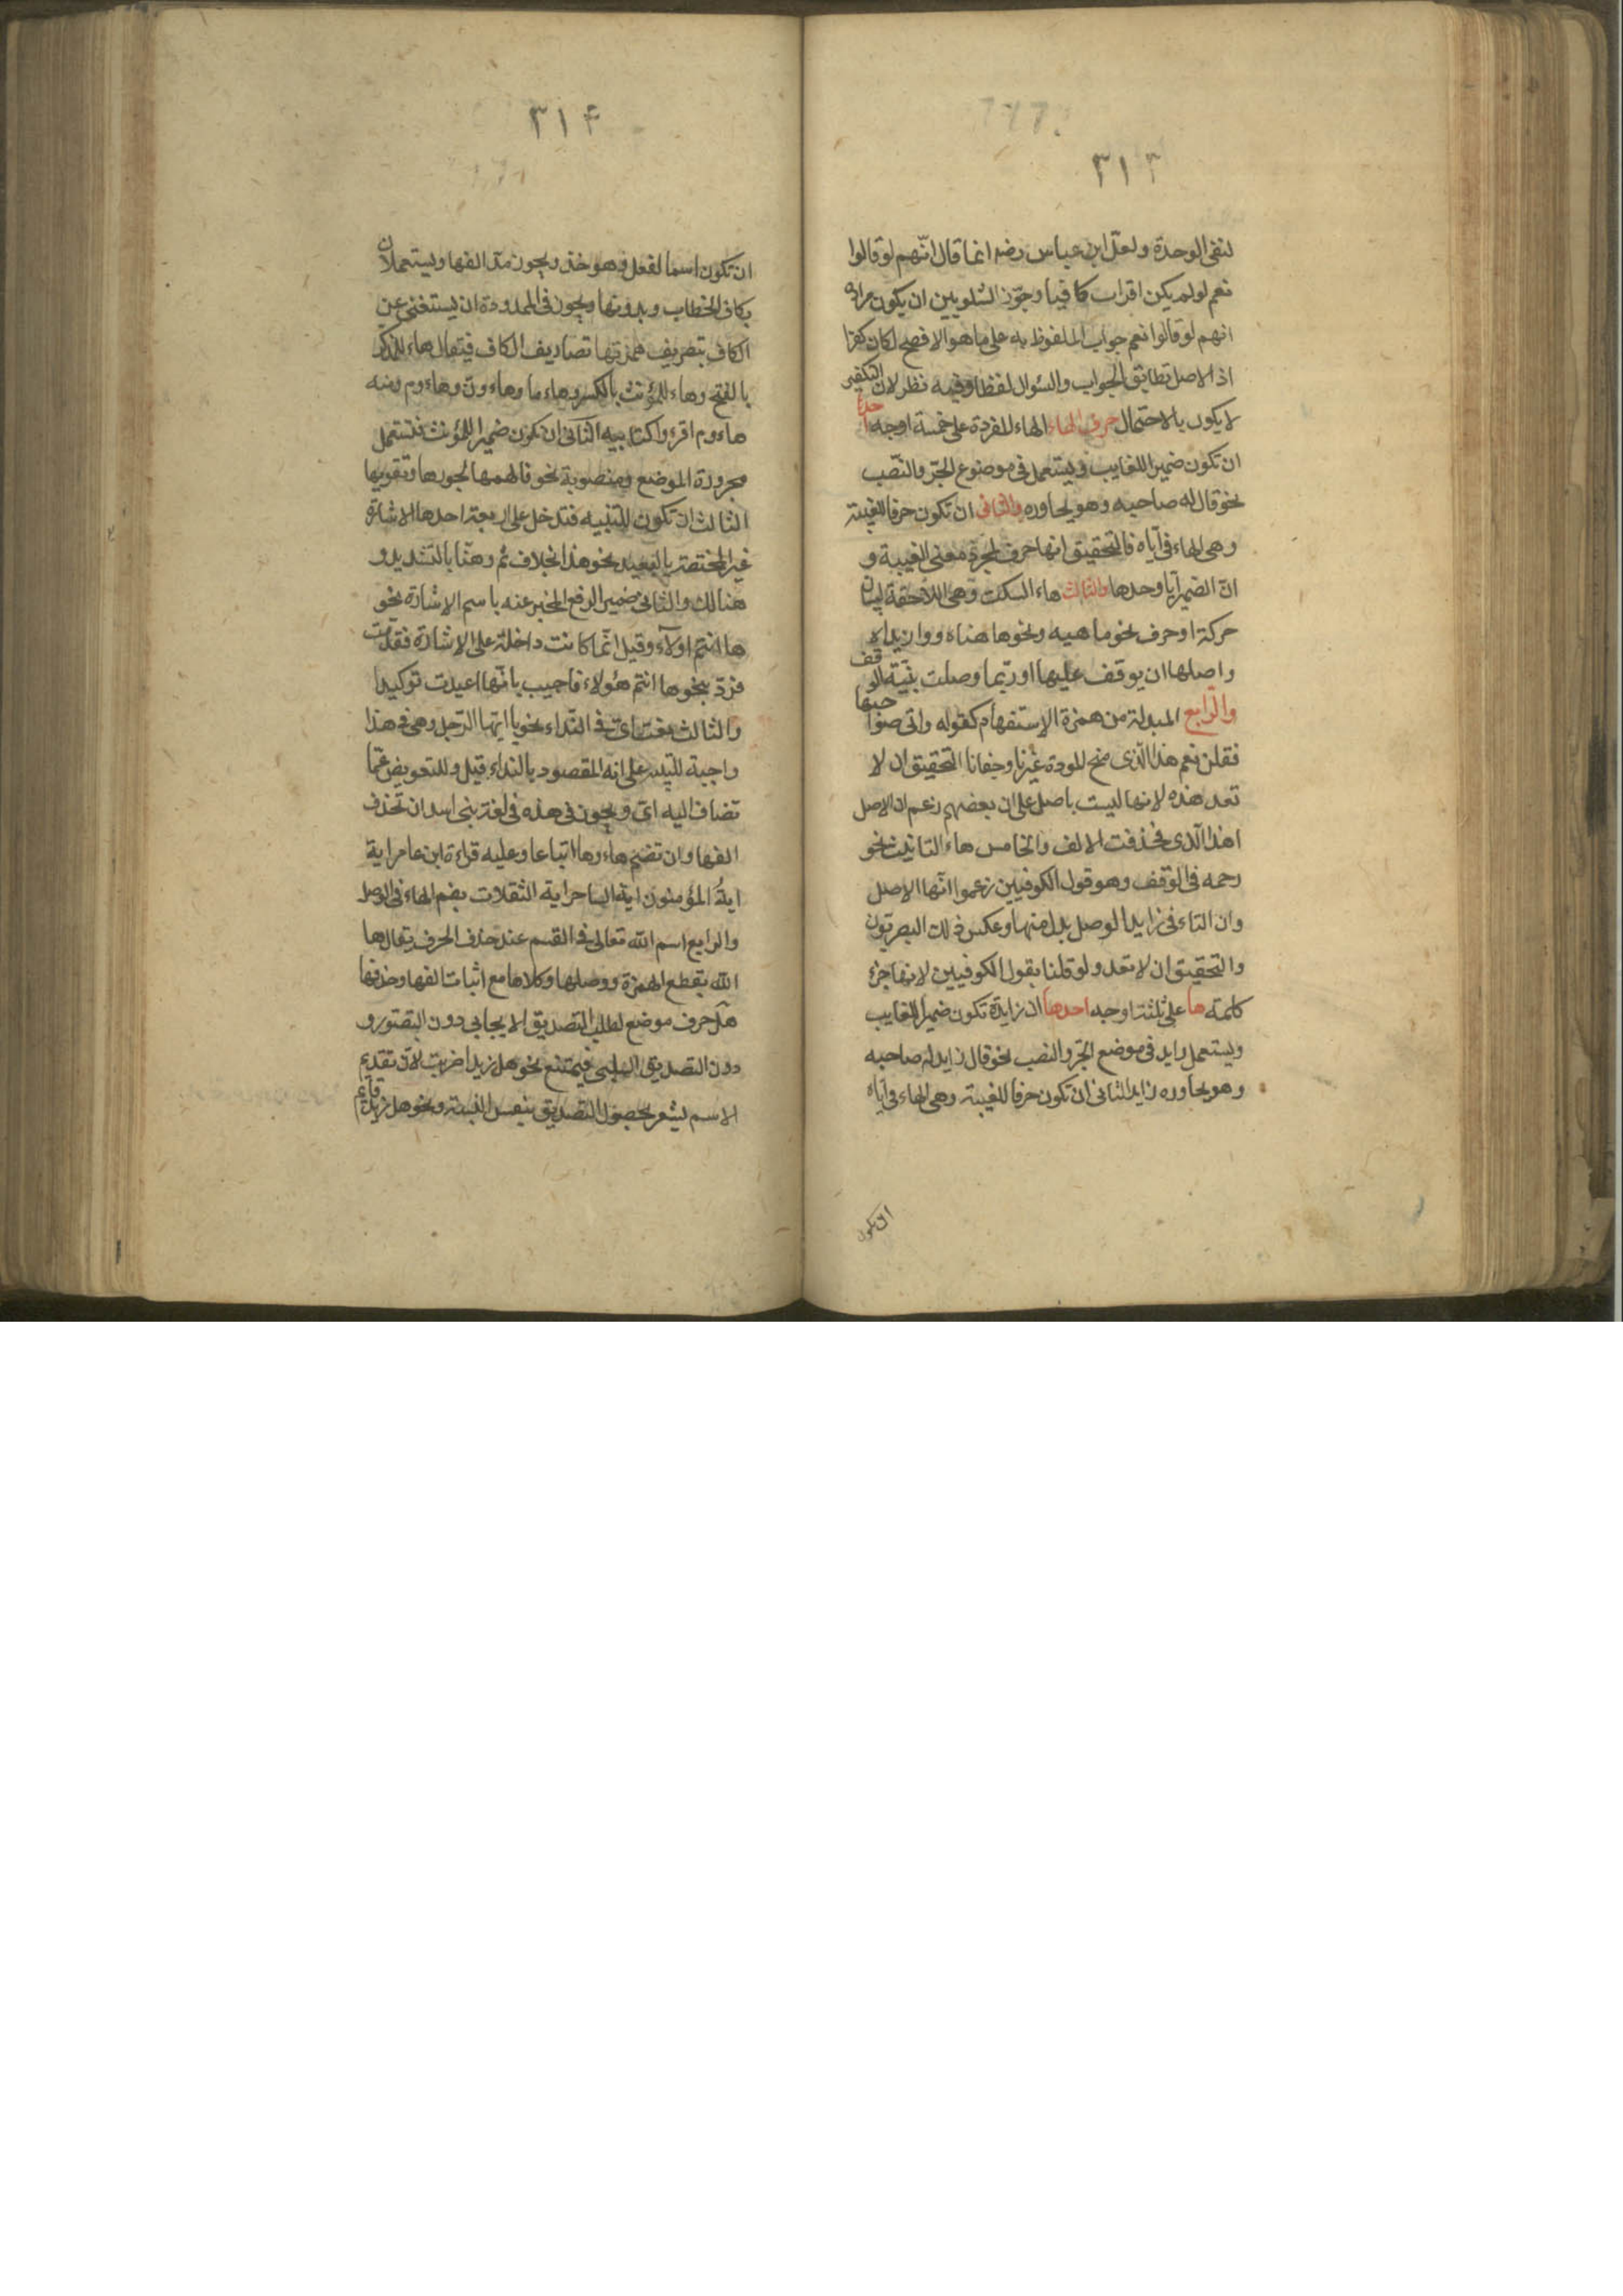 ٣١٣
لنفى الوحدة ولعل ابن عباس رضه انما قال انّهم لو قالوا
نعم لو لم يكن اقراب كافيا وجوّز الشلوبين ان يكون مراده
انهم لو قالوا نعم جواب الملفوظ به على ما هو الافصح لكان كفرا
اذ الاصل تطابق الجواب والسئوال لفظا وفيه نظر لان التكفير
لا يكون بالاحتمال حرف الهاء الهاء المفردة على خمسة اوجه احدها
ان تكون ضميرا للغايب ويستعمل فى موضوع الجرّ والنّصب
نحو قال له صاحبه وهو يحاوره والثانى ان تكون حرفا للغيبة
وهى الهاء فى آياه فالتحقيق انها حرف لمجرد معنى الغيبة و
انّ الضمير آيا وحدها والثالث هاء السكت وهى اللاحقة لبيان
حركة او حرف نحو ماهيه ونحوها هناه ووا زيداه
واصلها ان يوقف عليها او ربّما وصلت بنيّة الوقف
والرّابع المبدلة من همزة الاستفهام كقوله واتى صواحبها
فقلن نعم هذا الّذى منح المودة غيرنا وجفانا التحقيق ان لا
تعد هذه لانها ليست باصل على ان بعضهم زعم ان الاصل
اهذا الّذى فحذفت الالف والخامس هاء التانيث نحو
رحمه فى الوقف وهو قول الكوفيين زعموا انّها الاصل
وان التاء فى زايدا لوصل بدل منها وعكس ذلك البصريّون
والتحقيق ان لا تعد ولو قلنا بقول الكوفيين لانها جزء
كلمة ها على ثلثة اوجه احدها ان زايدة تكون ضميرا للغايب
ويستعمل زايد فى موضع الجرّ والنصب نحو قال زايد له صاحبه
وهو يحاوره زايد الثانى ان تكون حرفا للغيبة وهى الهاء فى آياه
ان تكون
٣١۴
ان تكون اسما لفعل وهو خذ ويجوز مدّ الفها ويستعملان
بكاف الخطاب وبدونها ويجوز فى الممدودة ان يستغنى عن
الكاف بتصريف همزتها تصاريف الكاف فيقال هاء للمذكر
بالفتح وهاء للمؤنث بالكسر وهاء ما وهاء ونّ وهاء وم ومنه
هاء وم اقرءوا كتابيه الثانى ان تكون ضميرا للمؤنث فتستعمل
مجرورة الموضع ومنصوبة نحو فالهمها فجورها وتقويها
الثالث ان تكون للتنبيه فتدخل على اربعة احدها الاشارة
غير المختصة بالبعيد نحو هذا بخلاف ثم وهنّا بالتشديد و
هنالك والثانى ضمير الرفع المخبر عنه باسم الاشارة نحو
ها انتم اولاء وقيل انّما كانت داخلة على الاشارة فقدّمت
فردّ بنحو ها انتم هؤلاء فاجيب بانّها اعيدت توكيدا
والثالث نعت اىّ فى النّداء نحو يا ايّها الرّجل وهى فى هذا
واجبة للتنبيه على انه المقصود بالنداء قيل وللتعويض عمّا
تضاف اليه اىّ ويجوز فى هذه فى لغة بنى اسد ان تحذف
الفها وان تضم هاءوها اتباعا وعليه قراءة ابن عامر اية
ايهُ المؤمنون ايه الساحر ايه الثقلان بضم الهاء فى الوصل
والرابع اسم الله تعالى فى القسم عند حذف الحرف يقال ها
الله بقطع الهمزة ووصلها وكلاها مع اثبات الفها وحذفها
هل حرف موضع لطلب التصديق الايجابى دون التصّور و
دون التصديق السلبى فيمتنع نحو هل زيدا ضربت لانّ تقديم
الاسم يشعر بحصول التصديق بنفس النسبة ونحو هل زيد قايم